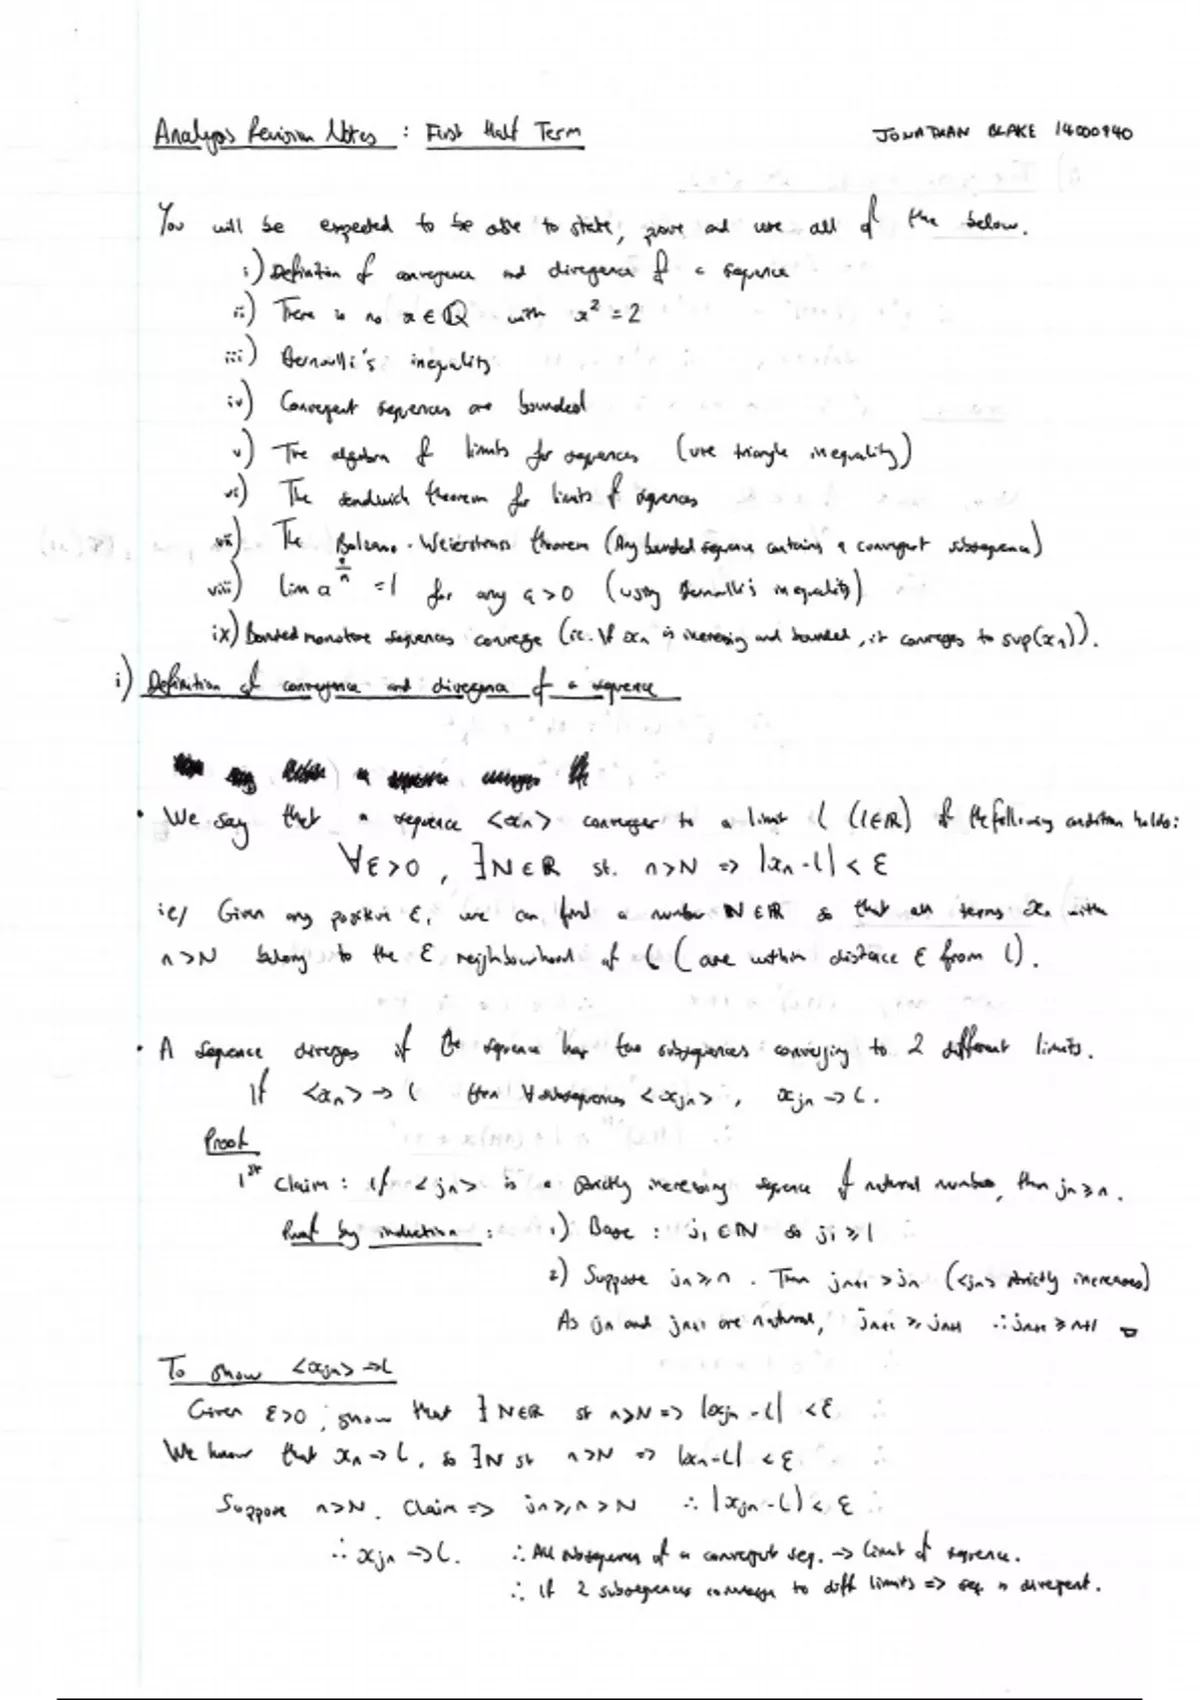 Analysis Revision Notes : First Half Term
JONATHAN BLAKE 14000940
You will be expected to be able to state, prove and use all of the below.
i) Definition of convergence and divergence of a sequence
ii) There is no x ∈ ℚ with x² = 2
iii) Bernoulli's inequality
iv) Convergent sequences are bounded
v) The algebra of limits for sequences (use triangle inequality)
vi) The sandwich theorem for limits of sequences
vii) The Bolzano-Weierstrass theorem (Any bounded sequence contains a convergent subsequence)
viii) lim a^(1/n) = 1 for any a > 0 (using Bernoulli's inequality)
ix) Bounded monotone sequences converge (ie. if xn is increasing and bounded, it converges to sup(xn)).
i) Definition of convergence and divergence of a sequence
• We say that a sequence <xn> converges to a limit l (l∈ℝ) if the following condition holds:
∀ε>0, ∃N∈ℝ st. n>N => |xn - l| < ε
ie/ Given any positive ε, we can find a number N∈ℝ so that all terms xn with
n>N belong to the ε neighbourhood of l (are within distance ε from l).
• A sequence diverges if the sequence has two subsequences converging to 2 different limits.
If <xn> → l then ∀ subsequences <xjn>, xjn → l.
Proof
1st Claim : If <jn> is a strictly increasing sequence of natural numbers, then jn ≥ n.
Proof by induction : 1) Base : j1 ∈ ℕ so j1 ≥ 1
2) Suppose jn ≥ n. Then jn+1 > jn (<jn> strictly increases)
As jn and jn+1 are natural, jn+1 ≥ jn+1 ∴ jn+1 ≥ n+1 □
To show <xjn> → l
Given ε>0, show that ∃N∈ℝ st n>N => |xjn - l| < ε
We know that xn → l, so ∃N st n>N => |xn - l| < ε
Suppose n>N. Claim => jn ≥ n > N ∴ |xjn - l| < ε
∴ xjn → l. ∴ All subsequences of a convergent seq. → limit of sequence.
∴ If 2 subsequences converge to diff limits => seq is divergent.